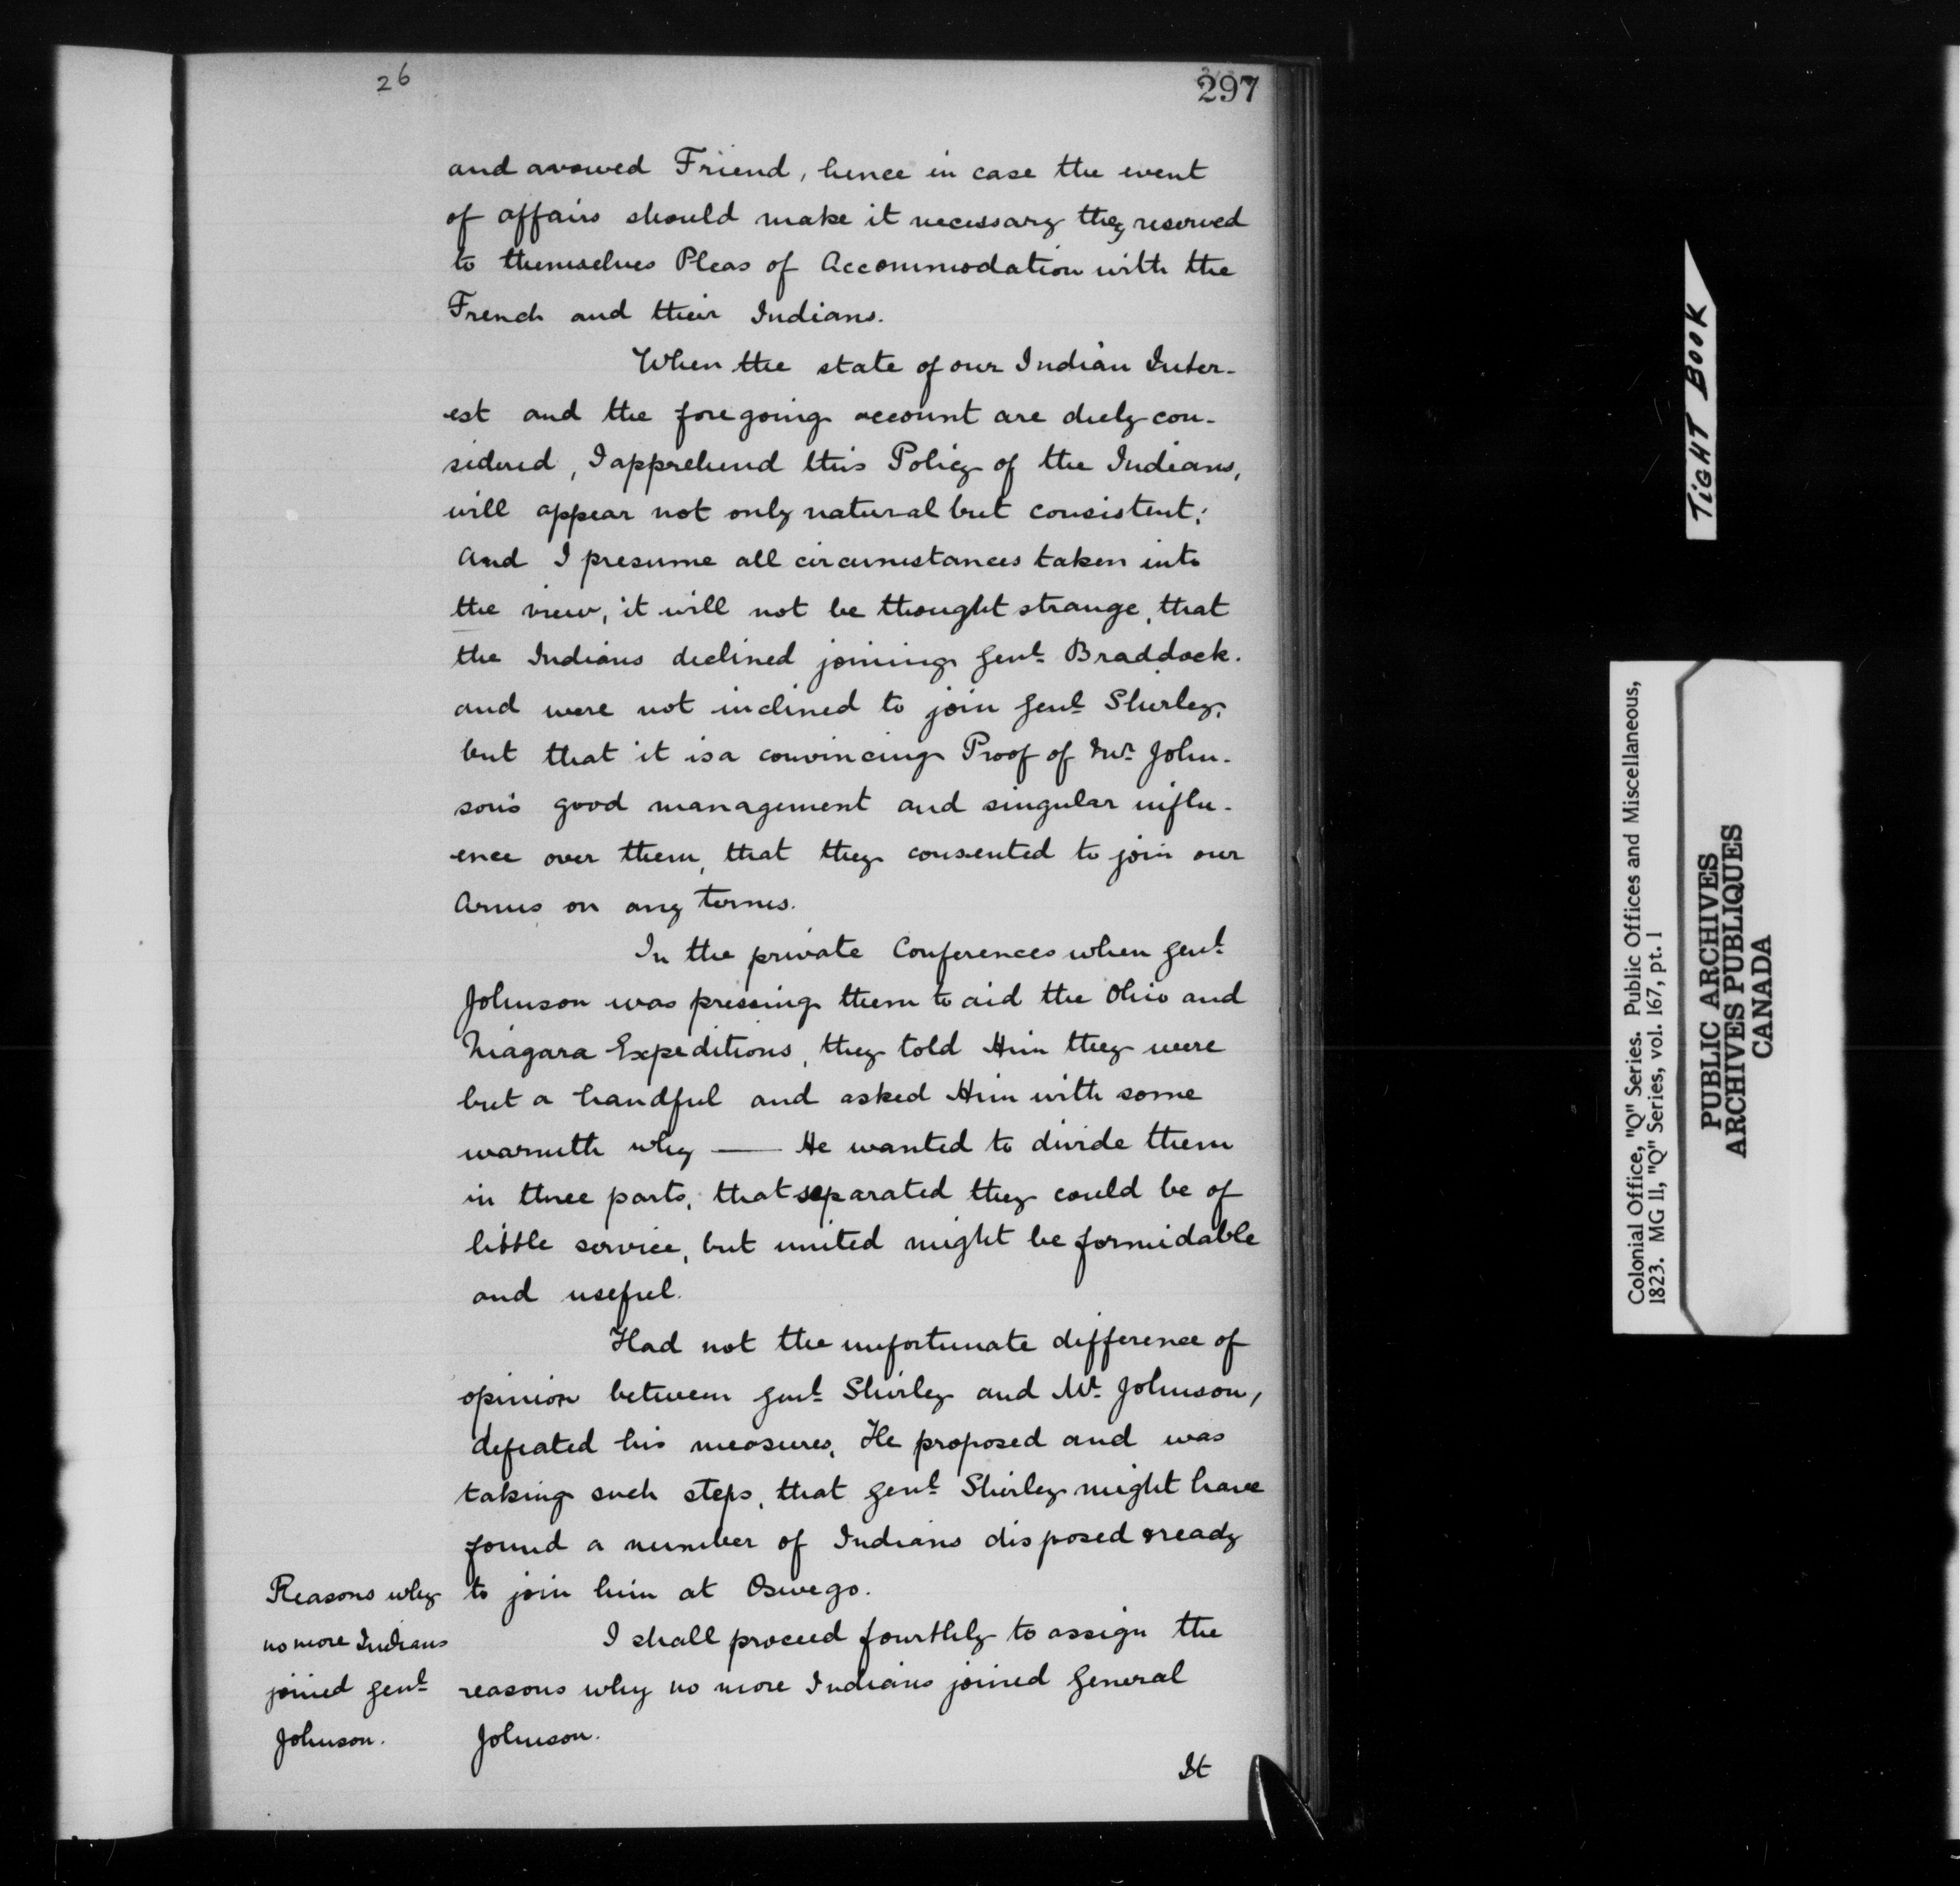 26
297
and avowed Friend, hence in case the event
of affairs should make it necessary they reserved
to themselves Pleas of Accommodation with the
French and their Indians.
When the state of our Indian Inter-
est and the foregoing account are duly con-
sidered, I apprehend this Policy of the Indians,
will appear not only natural but consistent;
And I presume all circumstances taken into
the view, it will not be thought strange, that
the Indians declined joining Genl. Braddock.
and were not inclined to join Genl. Shirley,
but that it is a convincing Proof of Mr. John-
son's good management and singular influ-
ence over them, that they consented to join our
Arms on any terms.
In the private Conferences when Genl.
Johnson was pressing them to aid the Ohio and
Niagara Expeditions, they told Him they were
but a handful and asked Him with some
warmth why — He wanted to divide them
in three parts, that separated they could be of
little service, but united might be formidable
and useful.
Had not the unfortunate difference of
opinion between Genl. Shirley and Mr. Johnson,
defeated his measures, He proposed and was
taking such steps, that Genl. Shirley might have
found a number of Indians disposed & ready
to join him at Oswego.
Reasons why
no more Indians
joined Genl.
Johnson.
I shall proceed fourthly to assign the
reasons why no more Indians joined General
Johnson.
It
TIGHT BOOK
Colonial Office, "Q" Series. Public Offices and Miscellaneous,
1823. MG 11, "Q" Series, vol. 167, pt. 1
PUBLIC ARCHIVES
ARCHIVES PUBLIQUES
CANADA